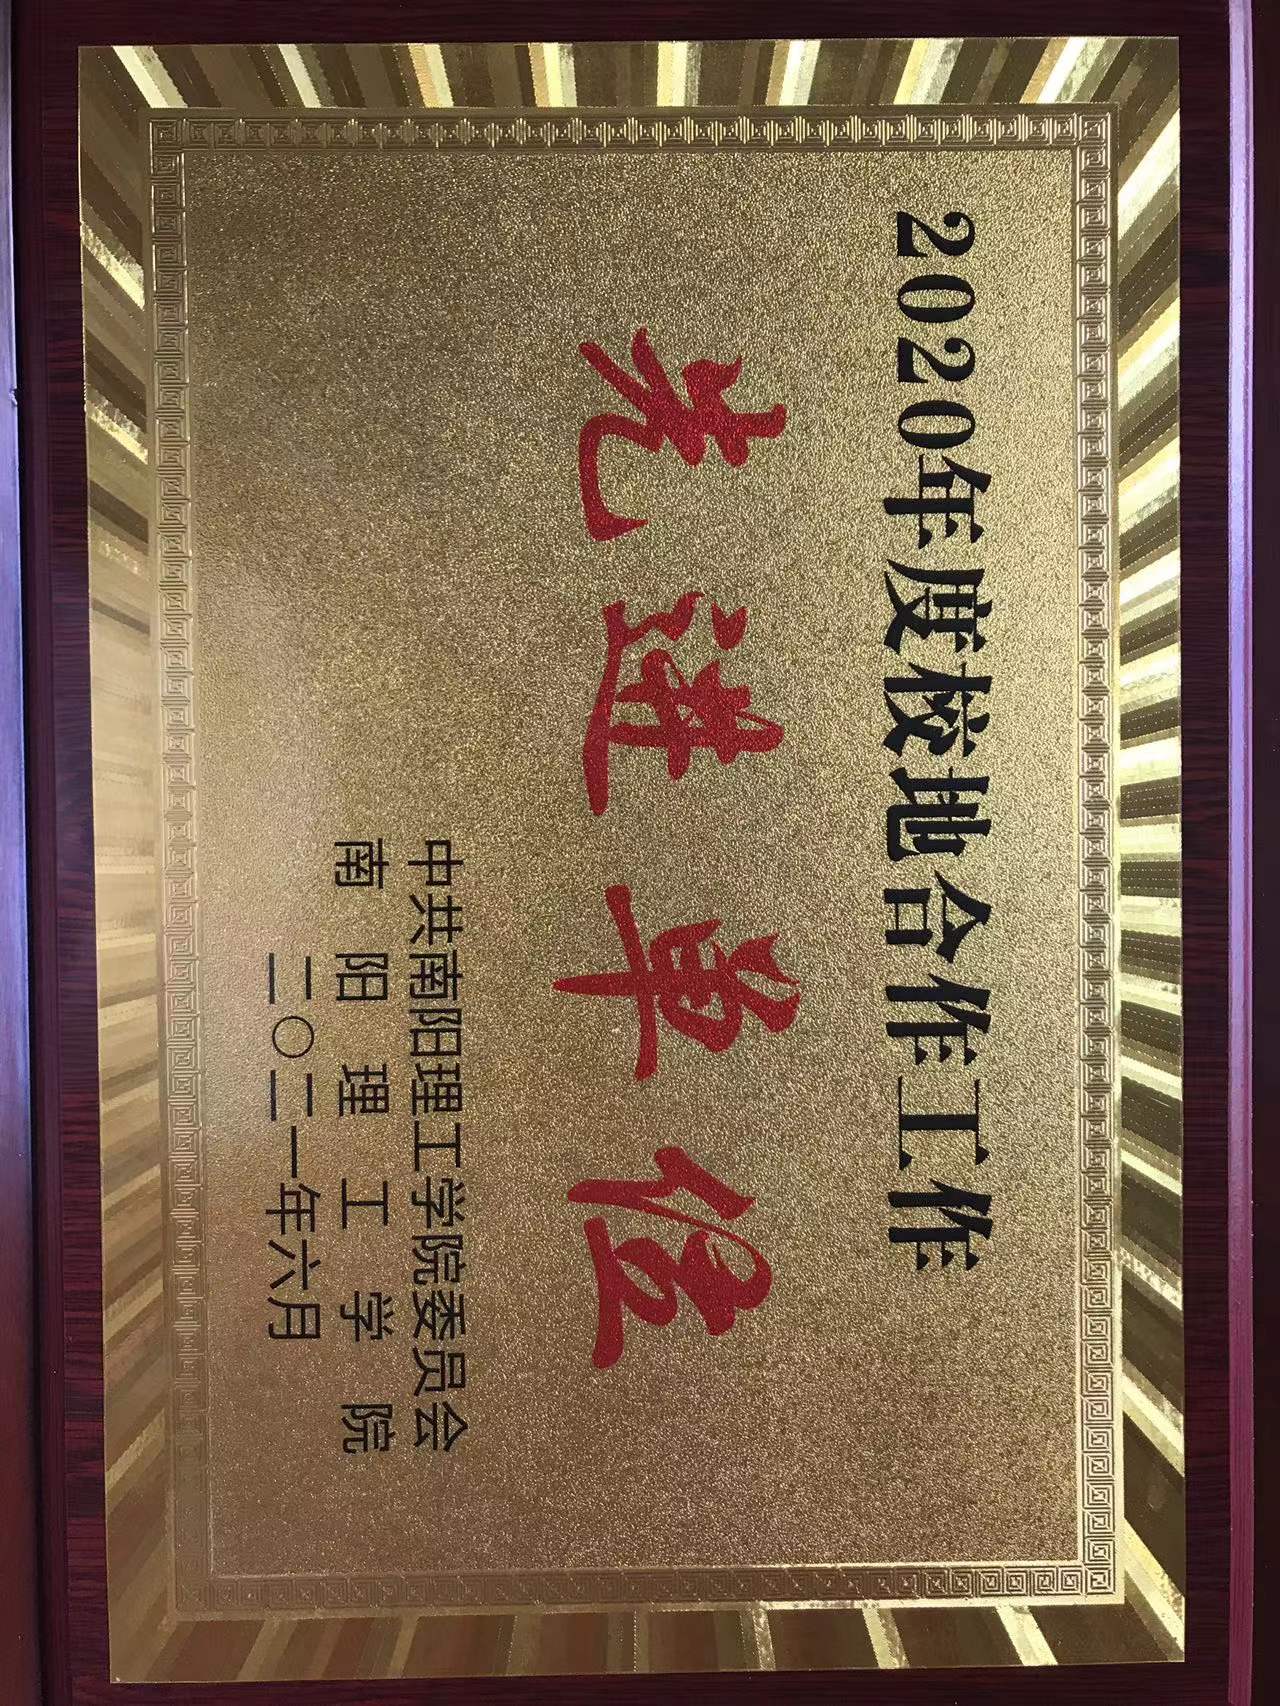 2020年度校地合作工作
先进单位
中共南阳理工学院委员会
南阳理工学院
二〇二一年六月